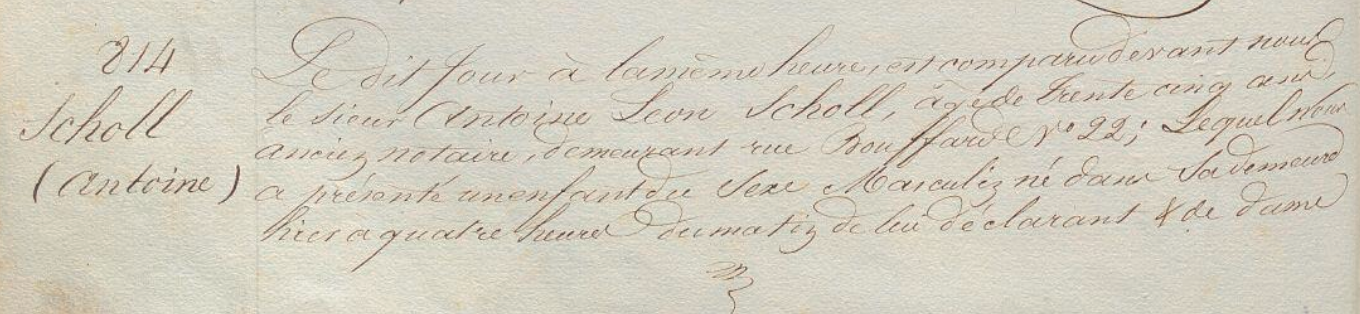 814
Scholl
(Antoine)
Le dit Jour à la même heure, est comparu devant nous
le sieur Antoine Leon Scholl, âgé de Trente cinq ans,
ancien notaire, demeurant rue Bouffard N° 22; Lequel Nous
a présenté un enfant du Sexe Masculin né dans Sa demeure
hier a quatre heures du matin de lui déclarant & de dame